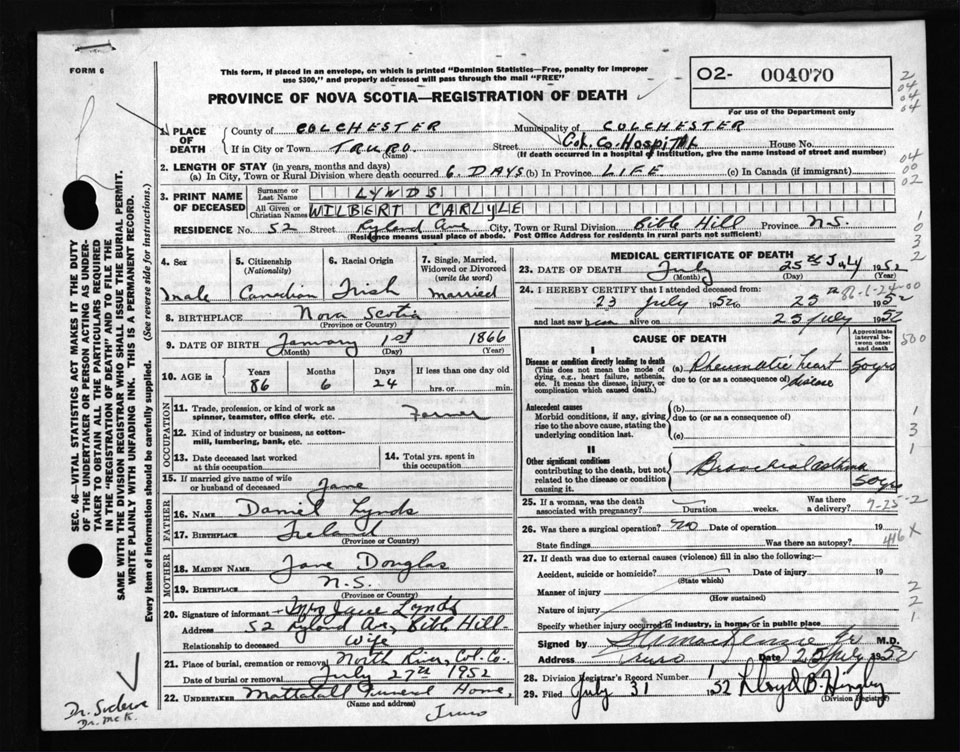 FORM 6
This form, if placed in an envelope, on which is printed "Dominion Statistics—Free, penalty for improper
use $300," and properly addressed will pass through the mail "FREE"
02- 004070
For use of the Department only
PROVINCE OF NOVA SCOTIA—REGISTRATION OF DEATH
1. PLACE OF DEATH
County of COLCHESTER Municipality of COLCHESTER
If in City or Town TRURO (Name) Street Col. Co. Hospital House No.
(If death occurred in a hospital or institution, give the name instead of street and number)
2. LENGTH OF STAY (in years, months and days)
(a) In City, Town or Rural Division where death occurred 6 DAYS (b) In Province LIFE (c) In Canada (if immigrant)
3. PRINT NAME OF DECEASED
Surname or Last Name LYNDS
All Given or Christian Names WILBERT CARLYLE
RESIDENCE No. 52 Street Ryland Ave City, Town or Rural Division Bible Hill Province N.S.
(Residence means usual place of abode. Post Office Address for residents in rural parts not sufficient)
4. Sex
male
5. Citizenship (Nationality)
Canadian
6. Racial Origin
Irish
7. Single, Married, Widowed or Divorced (write the word)
Married
8. BIRTHPLACE Nova Scotia
(Province or Country)
9. DATE OF BIRTH January 1st 1866
(Month) (Day) (Year)
10. AGE in Years 86 Months 6 Days 24 If less than one day old hrs. or min.
OCCUPATION
11. Trade, profession, or kind of work as spinner, teamster, office clerk, etc. Farmer
12. Kind of industry or business, as cotton-mill, lumbering, bank, etc.
13. Date deceased last worked at this occupation
14. Total yrs. spent in this occupation
15. If married give name of wife or husband of deceased Jane
FATHER
16. NAME Daniel Lynds
17. BIRTHPLACE Ireland
(Province or Country)
MOTHER
18. MAIDEN NAME Jane Douglas
19. BIRTHPLACE N.S.
(Province or Country)
20. Signature of informant Mrs Jane Lynds
Address 52 Ryland Av, Bible Hill
Relationship to deceased Wife
21. Place of burial, cremation or removal North River, Col. Co.
Date of burial or removal July 27th 1952
22. UNDERTAKER Mattatall Funeral Home,
(Name and address) Truro
MEDICAL CERTIFICATE OF DEATH
23. DATE OF DEATH July 25th July 1952
(Month) (Day)
24. I HEREBY CERTIFY that I attended deceased from:
23 July 1952 to 25th 1952
86-6-24
and last saw him alive on 25 July 1952
CAUSE OF DEATH
Approximate interval between onset and death
I
Disease or condition directly leading to death
(This does not mean the mode of dying, e.g., heart failure, asthenia, etc. It means the disease, injury, or complication which caused death.)
(a) Rheumatic heart disease 50 yrs
due to (or as a consequence of)
Antecedent causes
Morbid conditions, if any, giving rise to the above cause, stating the underlying condition last.
(b)
due to (or as a consequence of)
(c)
II
Other significant conditions
contributing to the death, but not related to the disease or condition causing it.
Bronchial asthma 50 yrs
25. If a woman, was the death associated with pregnancy? Duration weeks. Was there a delivery?
26. Was there surgical operation? no Date of operation 19
State findings Was there an autopsy?
416 X
27. If death was due to external causes (violence) fill in also the following:—
Accident, suicide or homicide? (State which) Date of injury 19
Manner of injury
(How sustained)
Nature of injury
Specify whether injury occurred in industry, in home, or in public place
Signed by M.D.
Address Truro Date 25 July 1952
28. Division Registrar's Record Number 1
29. Filed July 31 1952 Lloyd B. Hingley
(Division Registrar)
SEC. 46—VITAL STATISTICS ACT MAKES IT THE DUTY
OF THE UNDERTAKER OR PERSON ACTING AS UNDER-
TAKER TO OBTAIN ALL THE PARTICULARS REQUIRED
IN THE "REGISTRATION OF DEATH" AND TO FILE THE
SAME WITH THE DIVISION REGISTRAR WHO SHALL ISSUE THE BURIAL PERMIT.
WRITE PLAINLY WITH UNFADING INK. THIS IS A PERMANENT RECORD.
Every item of information should be carefully supplied. (See reverse side for instructions.)
Dr. McK.